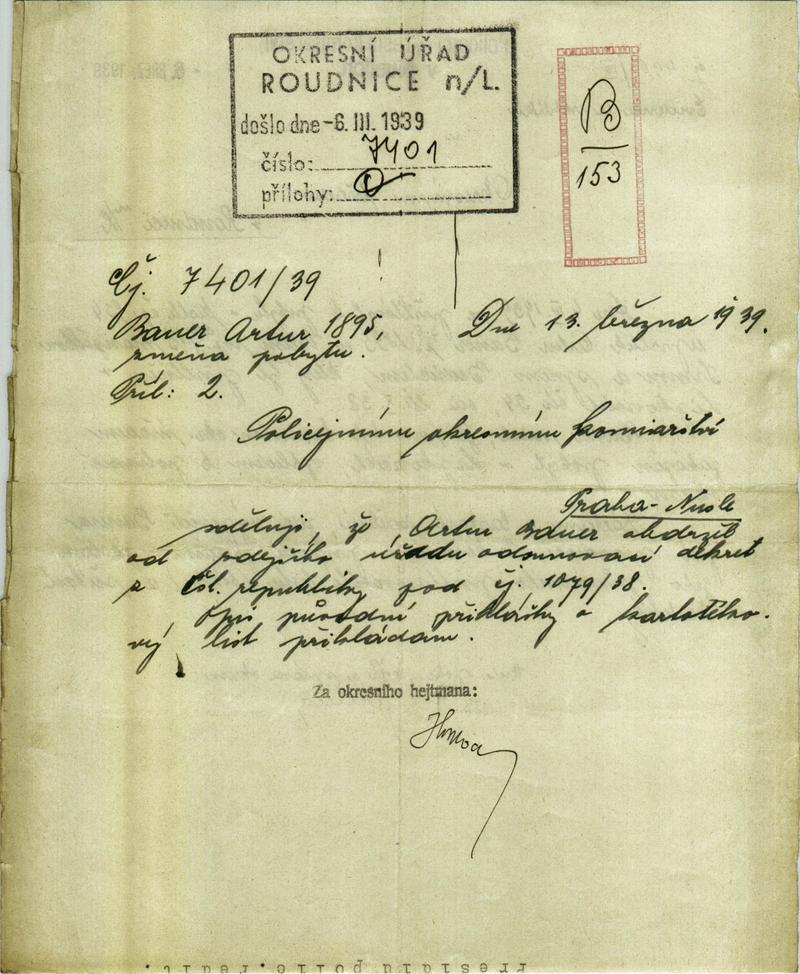 OKRESNÍ ÚŘAD
ROUDNICE n/L.
došlo dne -6. III. 1939
číslo: 7401
přílohy: 0
B
153
Čj. 7401/39
Bauer Artur 1895,
změna pobytu.
Dne 13. března 1939.
Příl: 2.
Policejnímu okresnímu komisařství
Praha-Nusle
sděluji, že Artur Bauer obdržel
od zdejšího úřadu odsunovací dekret
z Čsl. republiky pod čj. 1079/38.
Opis původní přihlášky a kartotéko-
vý list přikládám.
Za okresního hejtmana: